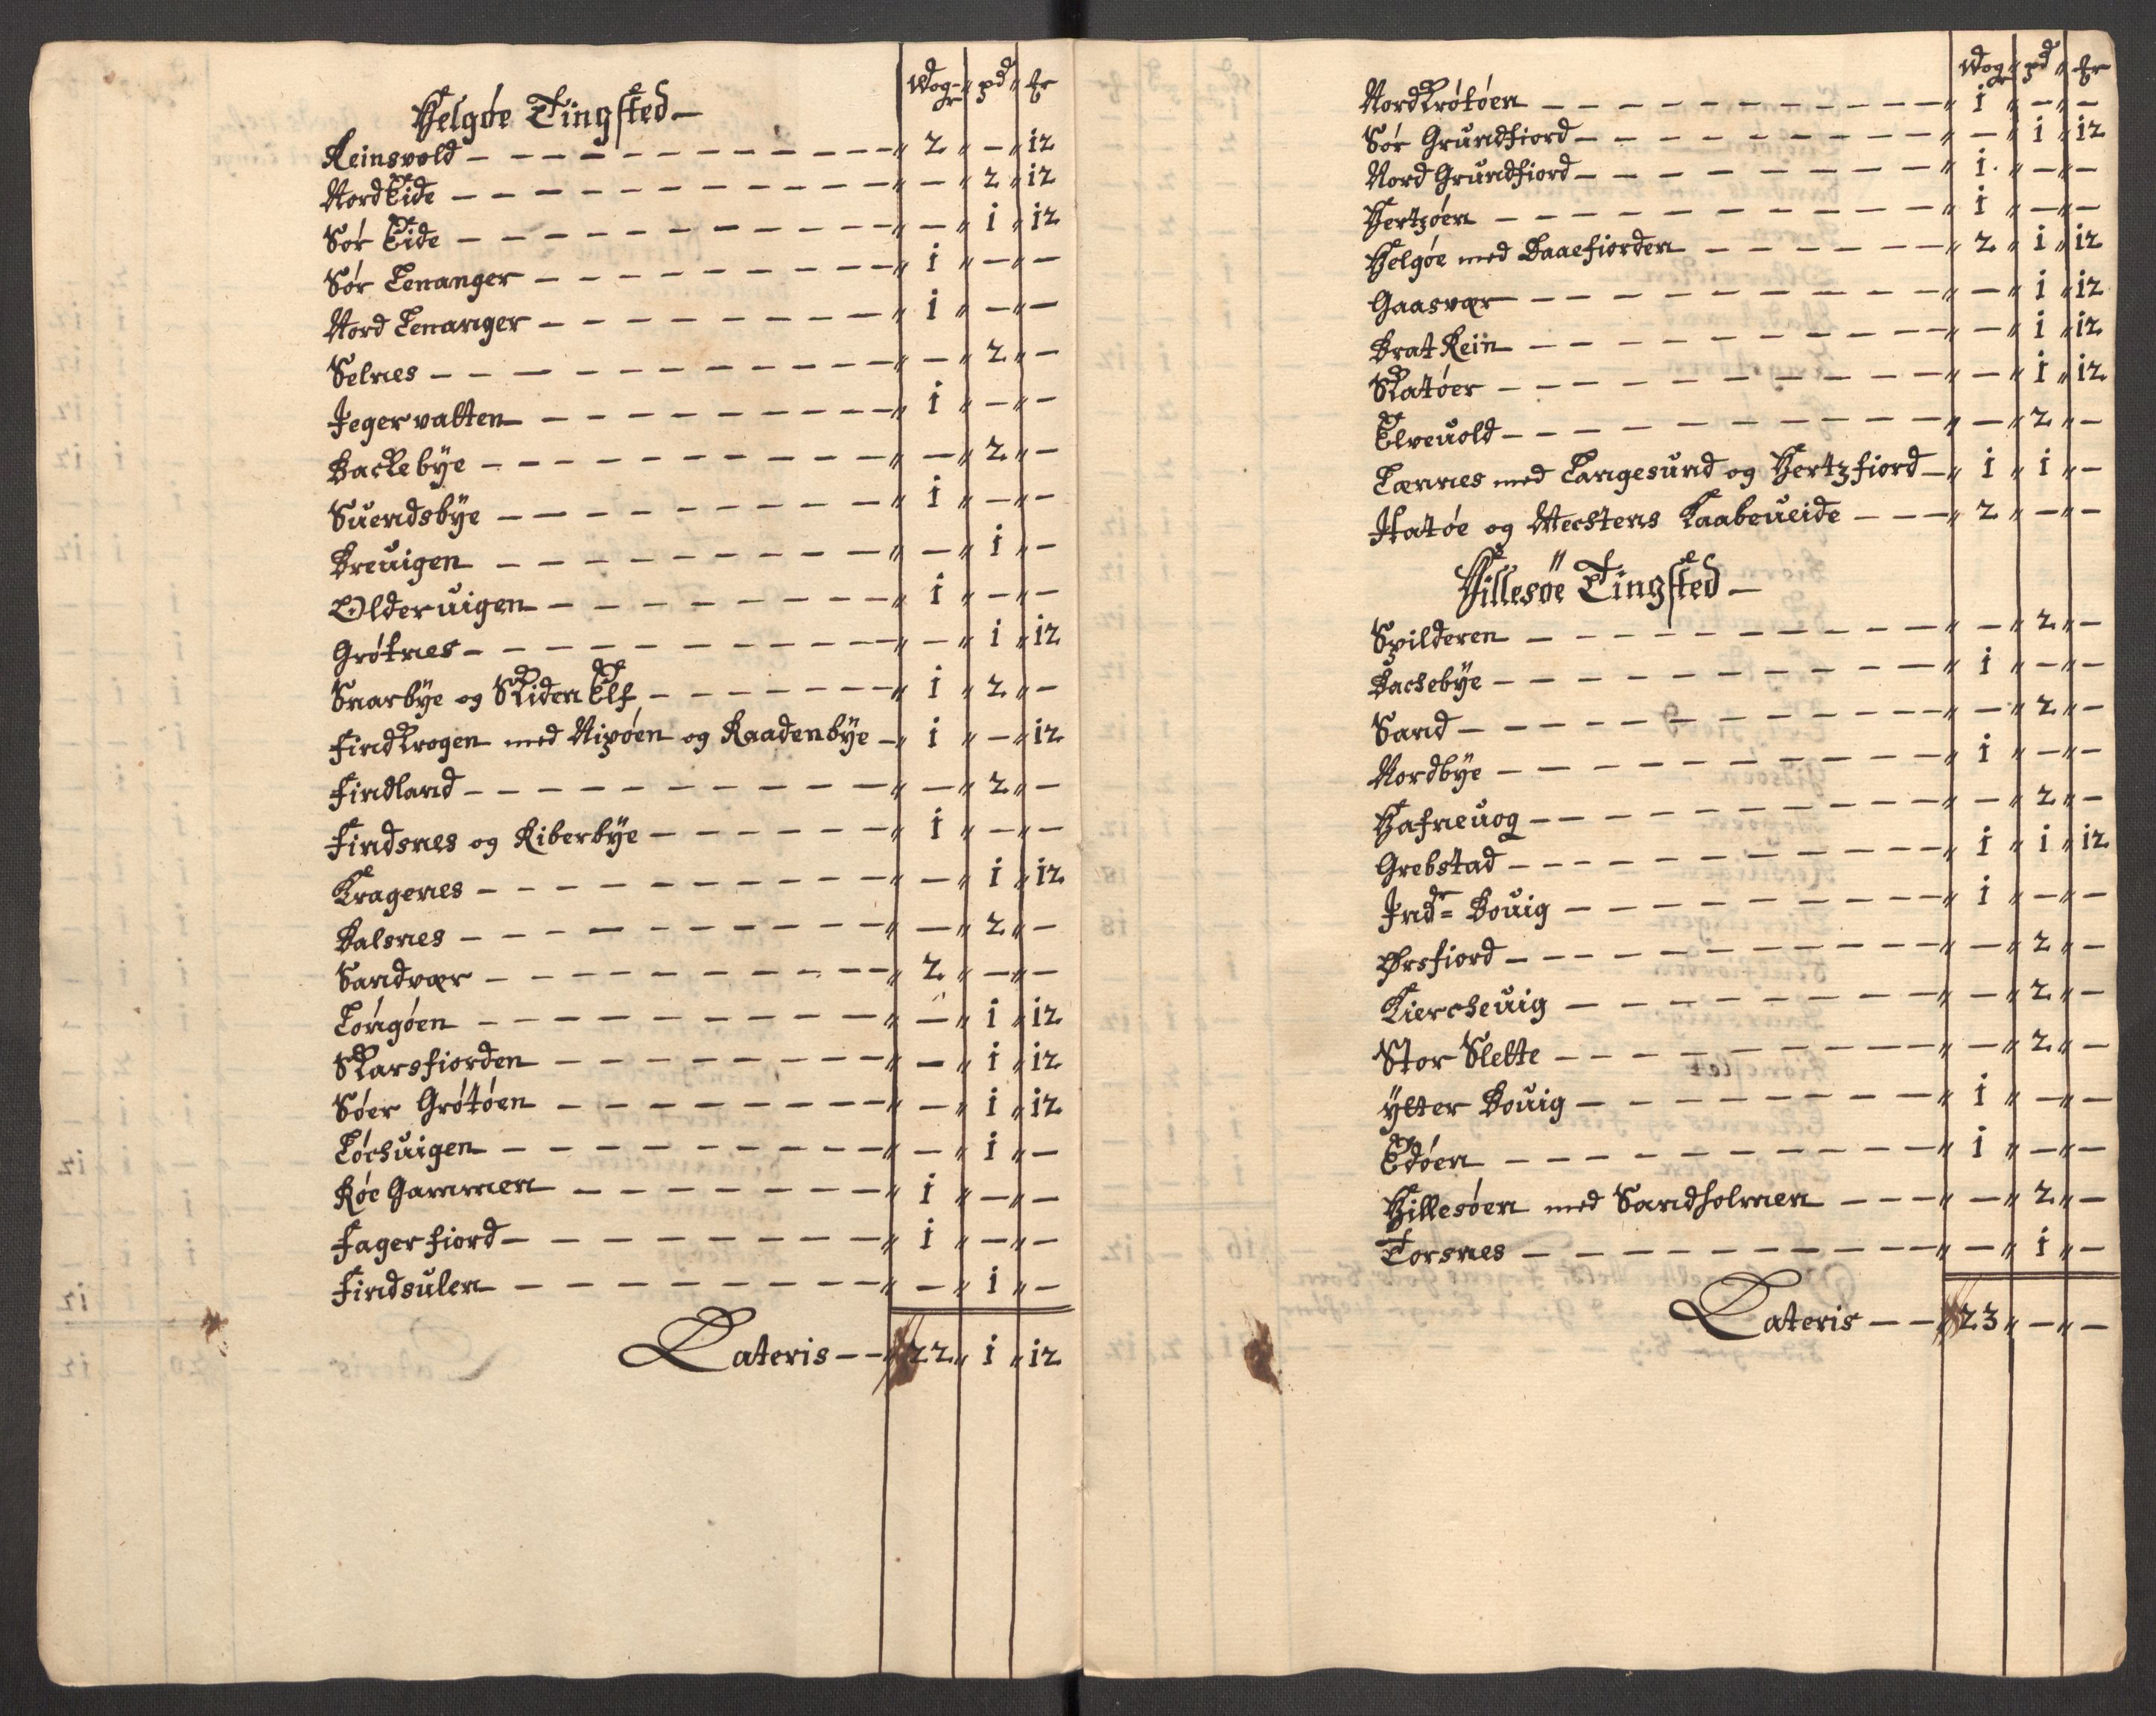 Wog- pd Er
Helgøe Tingsted —
Reinsvold — 2 „ — „ 12
Nord Eide — „ — „ 2 „ 12
Sør Eide — „ — „ 1 „ 12
Sør Lenanger — „ 1 „ — „ —
Nord Lenanger — „ 1 „ — „ —
Selnes — „ — „ 2 „ —
Jegervatten — „ 1 „ — „ —
Backebÿe — „ — „ 2 „ —
Suendsbÿe — „ 1 „ — „ —
Breuigen — „ — „ 1 „ —
Olderuigen — „ 1 „ — „ —
Grøtnes — „ — „ 1 „ 12
Snarbÿe og Skiden Elf — „ 1 „ 2 „ —
Findkrogen med Nipøen og Raadenbÿe — „ 1 „ — „ 12
Findland — „ — „ 2 „ —
Findsnes og Riberbÿe — „ 1 „ — „ —
Kragenes — „ — „ 1 „ 12
Balsnes — „ — „ 2 „ —
Sandvær — „ 2 „ — „ —
Longøen — „ — „ 1 „ 12
Skarsfiorden — „ — „ 1 „ 12
Søer Grøtøen — „ — „ 1 „ 12
Løchuigen — „ — „ 1 „ —
Røe Gammen — „ 1 „ — „ —
Fagerfiord — „ 1 „ — „ —
Findsulen — „ — „ 1 „ —
Lateris — „ 22 „ 1 „ 12
Wog pd Er
Nord Krøtøen — „ 1 „ — „ —
Sør Grundfiord — „ — „ 1 „ 12
Nord Grundfiord — „ 1 „ — „ —
Hertzøen — „ 1 „ — „ —
Helgøe med Daaefiorden — „ 2 „ 1 „ 12
Gaasvær — „ — „ 1 „ 12
Brat Rein — „ — „ 1 „ 12
Skatøer — „ — „ 1 „ 12
Elveuold — „ — „ 2 „ —
Lænnes med Langesund og Hertzfiord — „ 1 „ 1 „ —
Hatøe og Mechtens Kaabeueide — „ 2 „ — „ —
Hillesøe Tingsted —
Spilderen — „ — „ 2 „ —
Bachebÿe — „ 1 „ — „ —
Sand — „ — „ 2 „ —
Nordbÿe — „ 1 „ — „ —
Hafneuog — „ — „ 2 „ —
Grebstad — „ 1 „ 1 „ 12
Indr= Bouig — „ 1 „ — „ —
Ørsfiord — „ — „ 2 „ —
Kiercheuig — „ — „ 2 „ —
Stor Slette — „ — „ 2 „ —
ÿtter Bouig — „ 1 „ — „ —
Edøen — „ 1 „ — „ —
Hillesøen med Sandholmen — „ — „ 2 „ —
Torsnes — „ — „ 1 „ —
Lateris — „ 23 „ — „ —